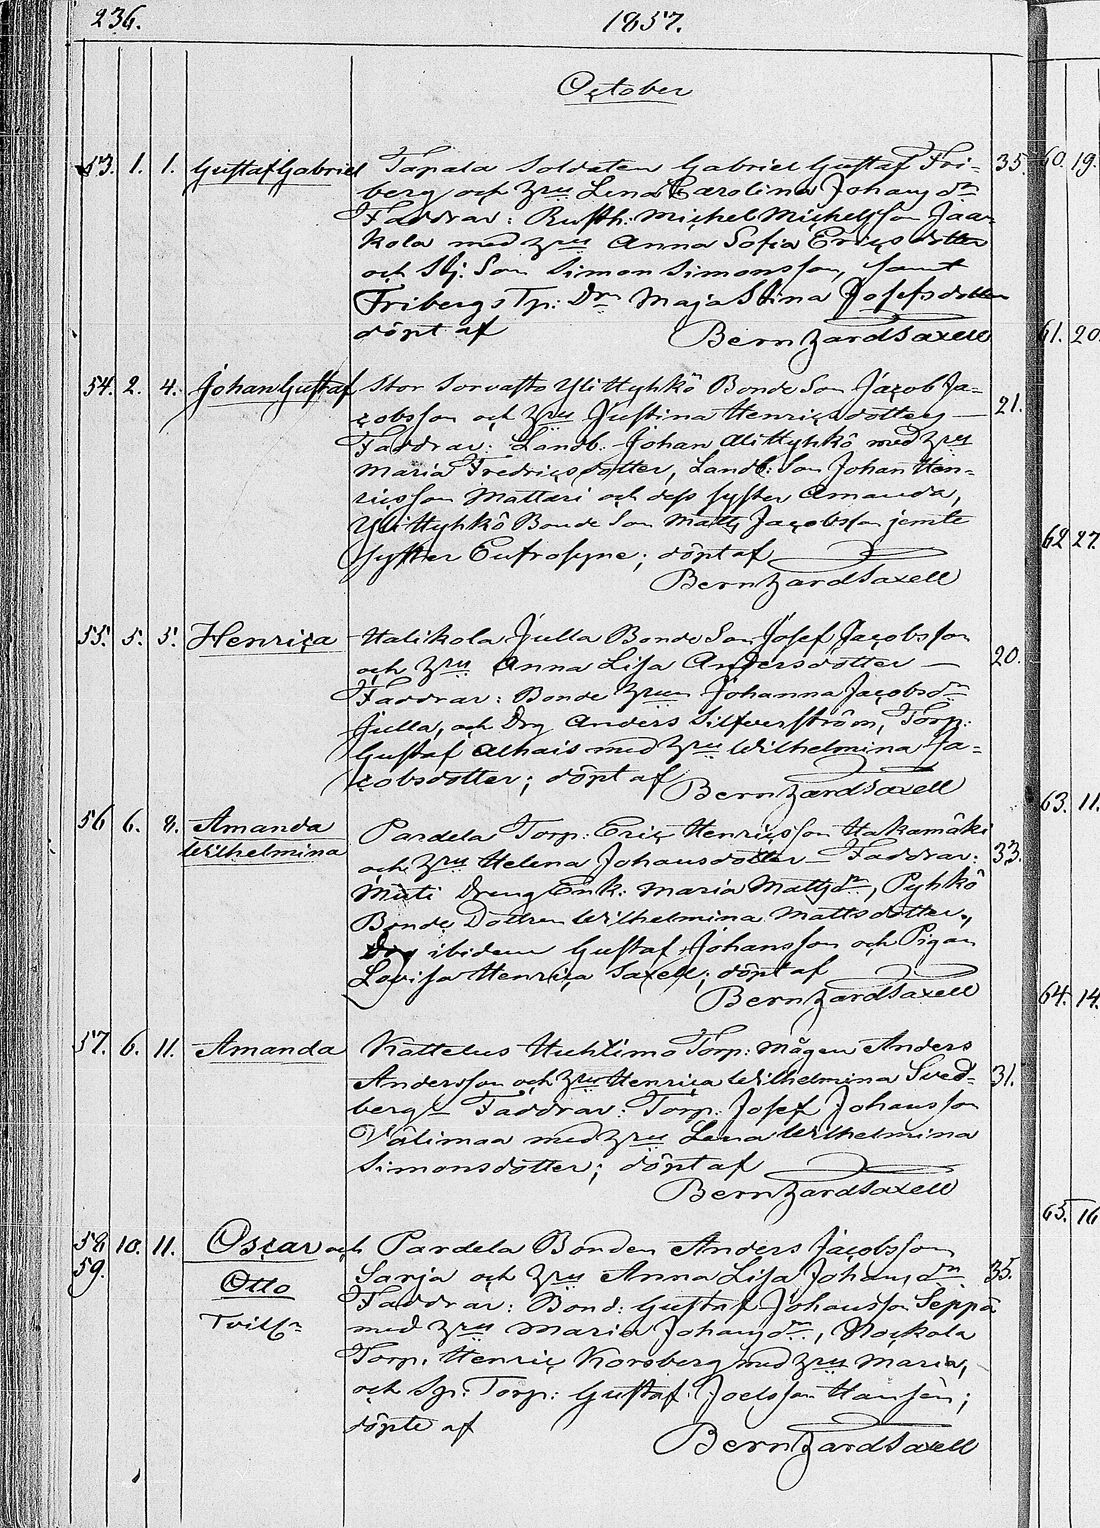 236.
1857.
October
53. 1. 1. Gustaf Gabriel Tapala Soldaten Gabriel Gustaf Fri- 35.
berg och hru Lena Carolina Johansdr
Faddrar: Rusth. Michel Michelsson Jaa-
kola med hru Anna Sofia Ericsdotter
och Slj: Son Simon Simonsson, samt
Fribergs Tp: Dr Maja Stina Josefsdotter
döpt af Bernhard Saxell
54. 2. 4. Johan Gustaf Stor Sorvasto Ylityhkö Bonde Son Jacob Ja-
cobsson och hru Justina Henricsdotter — 21.
Faddrar: Landb. Johan Alityhkö med hru
Maria Fredricsdotter, Landb: Son Johan Hen-
ricsson Mattari och dess syster Amanda,
Ylityhkö Bonde Son Matts Jacobsson jemte
syster Eufrosyne; döpt af
Bernhard Saxell
55. 5. 5. Henrica Halikola Julla Bonde Son Josef Jacobsson
och hru Anna Lisa Andersdotter — 20.
Faddrar: Bonde hrun Johanna Jacobsdr
Julla, och Drg Anders Silfverström, Torp:
Gustaf Alhais med hru Wilhelmina Ja-
cobsdotter; döpt af Bernhard Saxell
56 6. 8. Amanda
Wilhelmina
Pardela Torp: Eric Henricsson Hakamäki
och hru Helena Johansdotter — Faddrar: 33.
Dreng Enk: Maria Mattsdr, Pyhkö
Bonde Dottren Wilhelmina Mattsdotter,
Drg ibidem Gustaf Johansson och Pigan
Lovisa Henrica Saxell; döpt af
Bernhard Saxell
57. 6. 11. Amanda Kattelus Huhtimo Torp: Mågen Anders
Andersson och hru Henrica Wilhelmina Sved- 31.
berg — Faddrar: Torp: Josef Johansson
Välimaa med hru Lena Wilhelmina
Simonsdotter; döpt af
Bernhard Saxell
58 10. 11. Oscar och Pardela Bonden Anders Jacobsson
59. Otto Sarja och hru Anna Lisa Johansdr. 35.
Faddrar: Bond: Gustaf Johansson Seppä
med hru Maria Johansdr, Nockola
Torp. Henric Korsberg med hru Maria,
och Torp: Gustaf Joelsson Hansén;
döpte af
Bernhard Saxell
60. 19.
61. 20.
62 27.
63. 11.
64. 14.
65. 16